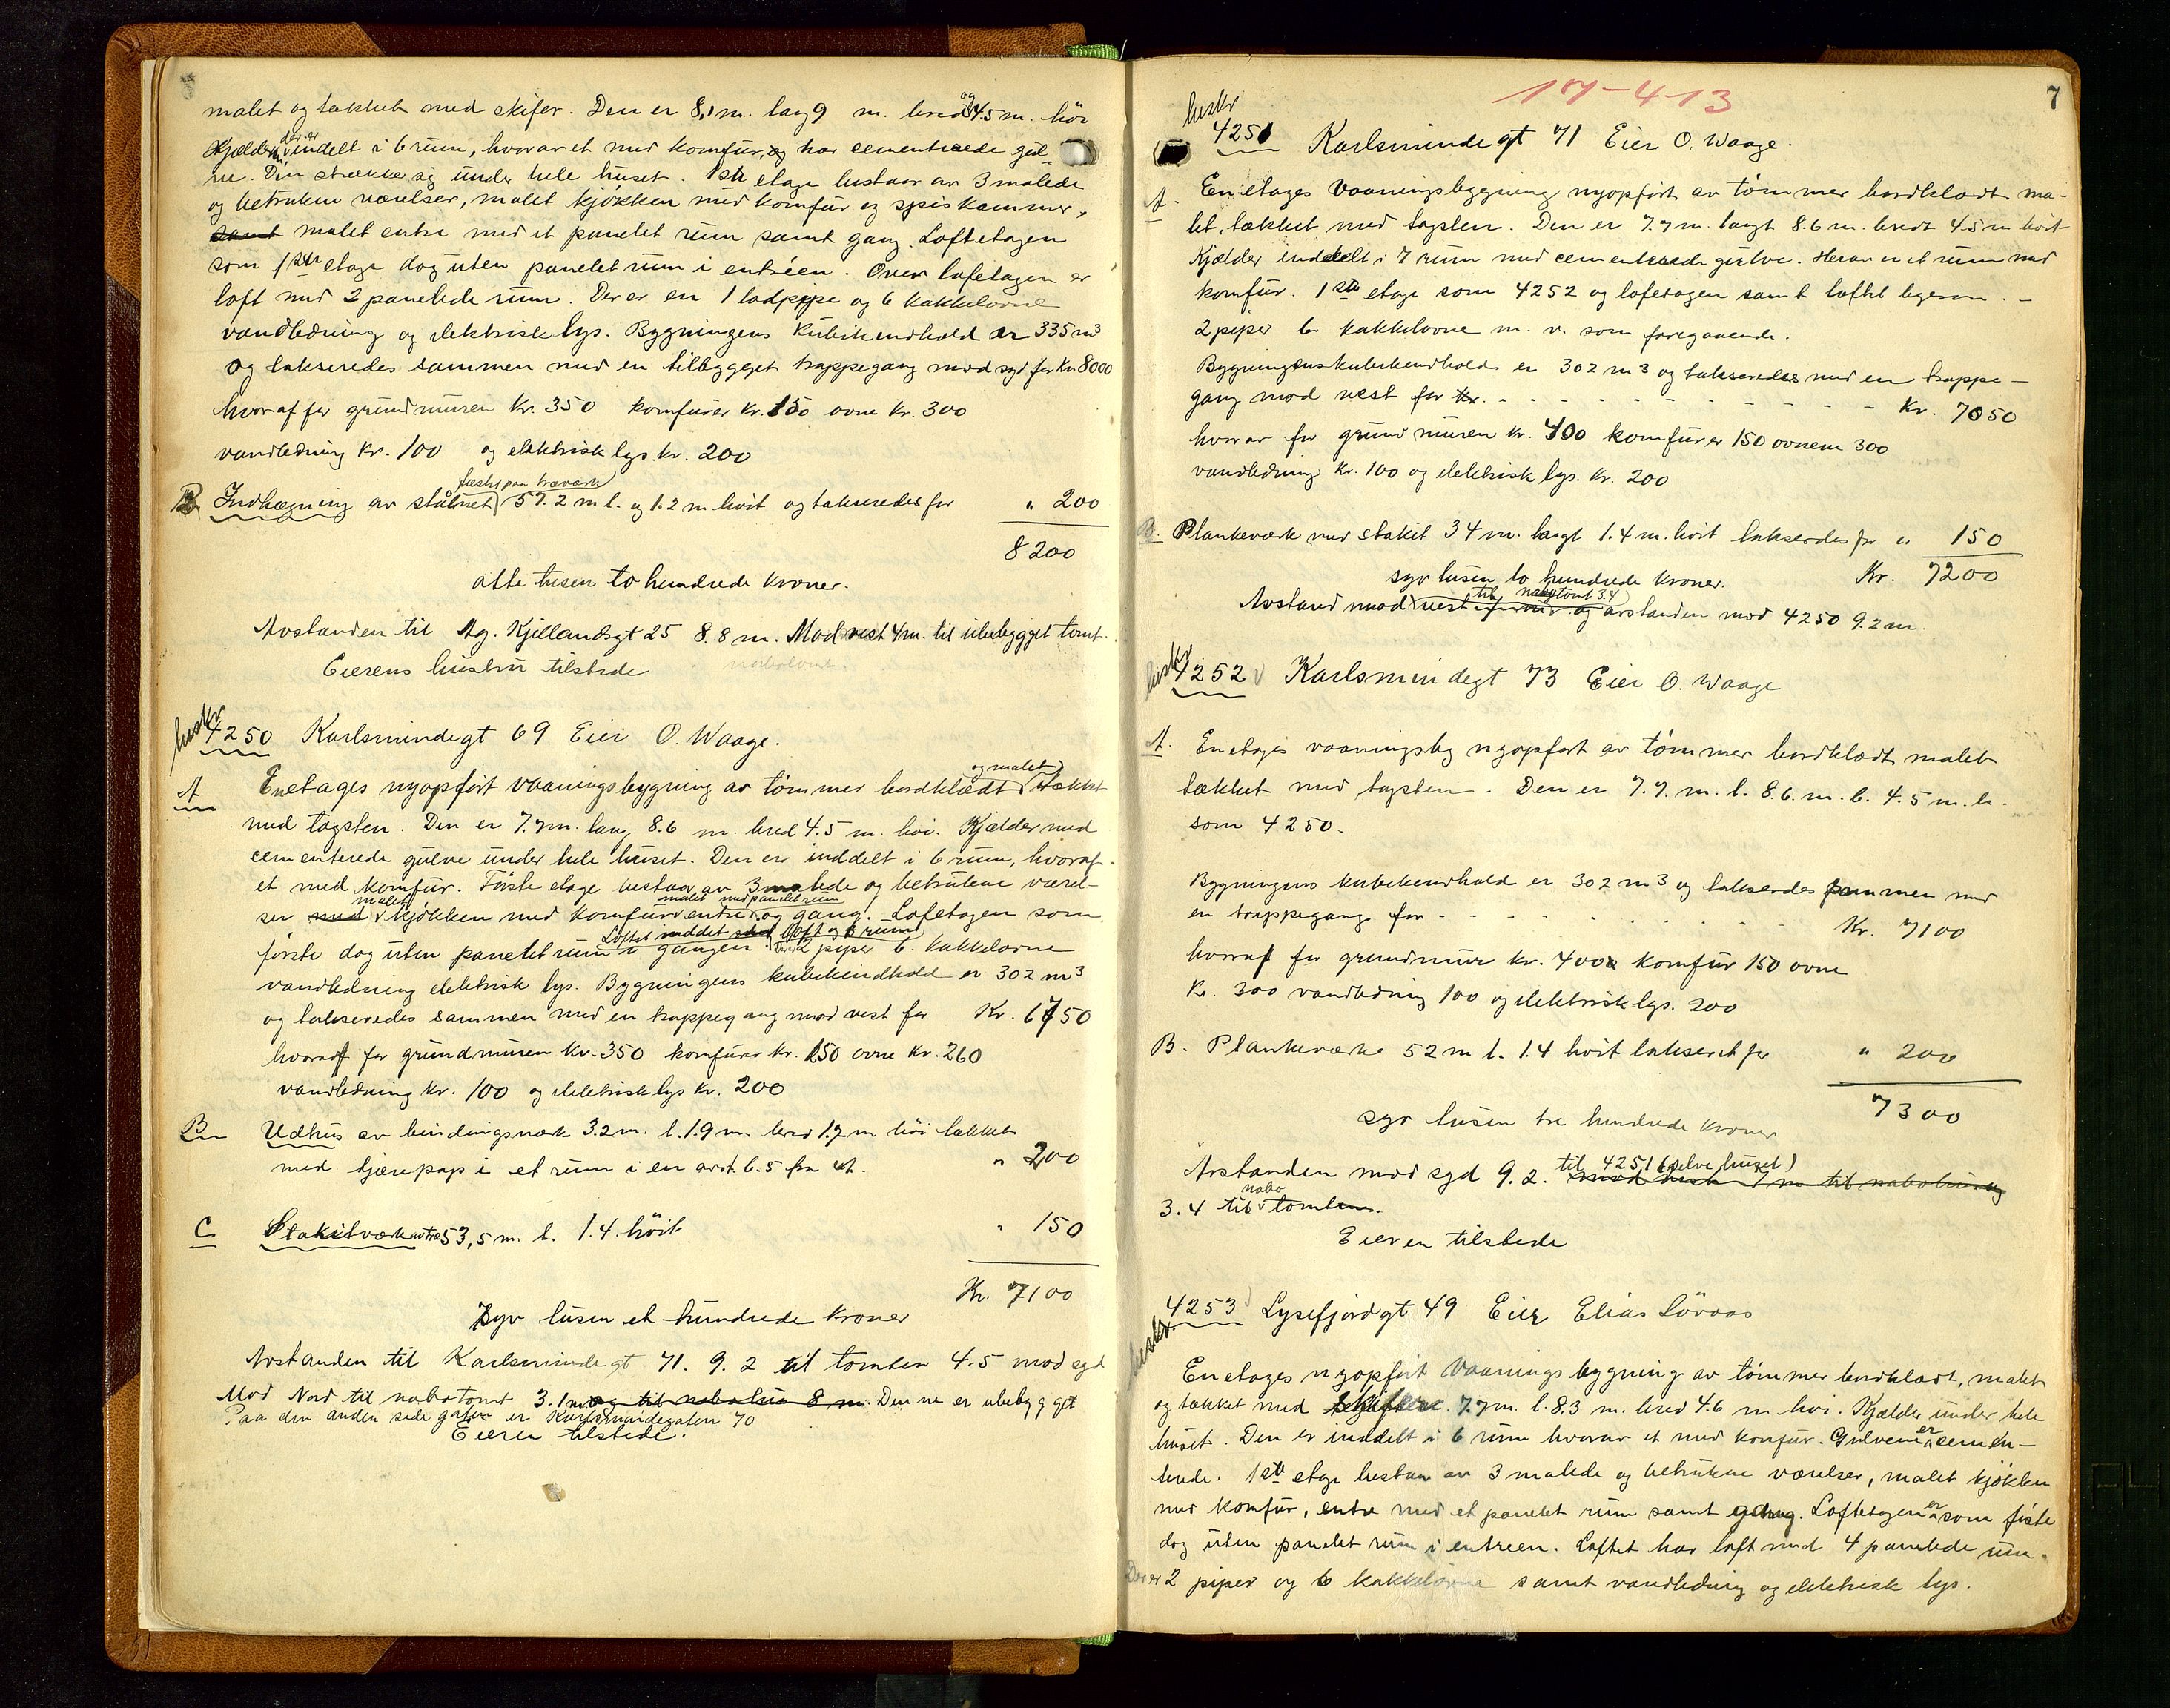 malet og tækket med skifer. Den er 8,1 m. lang 9 m. bred og 4.5 m. høi
Kjælder der er inddelt i 6 rum, hvorav et med komfur, og har cementerede gul-
ve. Den strækker sig under hele huset. 1ste etage bestaar av 3 malede
og betrukne værelser, malet kjøkken med komfur og spiskammer,
samt malet entre med et panelet rum samt gang. Loftetagen
som 1ste etage dog uten panelet rum i entréen. Over lofetagen er
loft med 2 panelede rum. Der er en 1 ladpipe og 6 kakkelovne
vandledning og elektrisk lys. Bygningens kubikindhold er 335 m³
og takseredes sammen med en tilbygget trappegang mod syd for Kr. 8000
hvoraf for grundmuren Kr. 350 komfurer Kr. 150 ovne Kr. 300
vandledning Kr. 100 og elektrisk lys. kr. 200
fæstet paa træværk
B Indhegning av stålnet 57.2 m l. og 1.2 m høit og takseredes for " 200
8200
otte tusen to hundrede kroner.
Avstanden til Ag. Kjellandsgt 25 8.8 m. Mod vest 4 m. til ubebygget tomt.
Eierens hustru tilstede nabotomt.
beskr
4250 Karlsmindegt 69 Eier O. Waage.
og malet
A Enetages nyopført vaaningsbygning av tømmer bordklædt tækket
med tagsten. Den er 7.7 m. lan, 8.6 m. bred 4.5 m. høi. Kjælder med
cementerede gulve under hele huset. Den er inddelt i 6 rum, hvoraf
et med komfur. Første etage bestaar av 3 malede og betrukne værel-
malet malet med panelet rum
ser med kjøkken med komfur entre og gang. Lofetagen som
Loftet inddelt loft og 6 rum
første dog uten panelet rum i gangen. Der er 2 piper 6. kakkelovne
vandledning elektrisk lys. Bygningens kubikindhold er 302 m³
og takseredes sammen med en trappegang mod vest for Kr. 6750
hvoraf for grundmuren Kr. 350 komfurer Kr. 150 ovne Kr. 260
vandledning Kr. 100 og elektrisk lys Kr. 200
B Udhus av bindingsværk 3.2 m. l. 1.9 m. bred 1.7 m høi tækket
med tjærepap i et rum i en avst. 6.5 fra A. " 200
C. Stakitværk av træ 53,5 m. l. 1.4. høit " 150
Kr. 7100
Syv tusen et hundrede kroner
Avstanden til Karlsmindegt 71. 9.2 til tomten 4.5 mod syd
Mod Nord til nabotomt 3.1 m og til nabohus 8 m. Denne er ubebygget
Paa den anden side gaten er Karlsmindegaten 70
Eieren tilstede.
17-4-13
7
beskr
4251 Karlsminde gt 71 Eier O. Waage.
A. Enetages Vaaningsbygning nyopført av tømmer bordklædt ma-
let, tækket med tagsten. Den er 7.7 m. langt 8.6 m. bredt 4.5 m høit
Kjælder inddelt i 7 rum med cementerede gulve. Herav er et rum med
komfur. 1ste etage som 4252 og lofetagen samt loftet ligesom. -
2 piper 6 kakkelovne m. v. som foregaaende.
Bygningens kubikindhold er 302 m³ og takseredes med en trappe-
gang mod vest for Kr. - - - Kr. 7050
hvorav for grundmuren Kr. 400 komfurer 150 ovnene 300
vandledning Kr. 100 og elektrisk lys. Kr. 200
B. Plankeværk med stakit 34 m. langt 1.4 m. høit takseredes for " 150
syv tusen to hundrede kroner. Kr. 7200
til nabotomt 3.4
Avstand mod vest og avstanden mod 4250 9.2 m.
beskr
4252 Karlsmindegt 73 Eier O. Waage
A. Enetages vaaningsby nyopført av tømmer bordklædt malet
tækket med tagsten. Den er 7.7. m. l. 8.6. m. b. 4.5 m. h.
som 4250.
Bygningens kubikindhold er 302 m³ og takseredes sammen med
en trappegang for - - - Kr. 7100
hvoraf for grundmur kr. 400 komfur 150 ovne
Kr. 300 vandledning 100 og elektrisk lys. 200
B. Plankeværk 52 m l. 1.4 høit takseret for " 200
7300
syv tusen tre hundrede kroner
til 4251 (selve huset)
Avstanden mod syd 9.2. mod vest 7 m til nabohus og
nabo
3.4 til tomten.
Eieren tilstede
beskr.
4253 Lysefjordgt 49 Eier Elias Løvaas
Enetages nyopført Vaaningsbygning av tømmer bordklædt, malet
og tækket med skifer. 7.7 m. l. 8.3 m. bred 4.6 m høi. Kjælder under hele
huset. Den er inddelt i 6 rum hvorav et med komfur. Gulvene er cemen-
terede. 1ste etage bestaar av 3 malede og betrukne værelser, malet kjøkken
med komfur, entre med et panelet rum samt gang. Loftetagen er som første
dog uten panelet rum i entreen. Loftet har loft med 4 panelede rum.
Der er 2 piper og 6 kakkelovne samt vandledning og elektrisk lys.